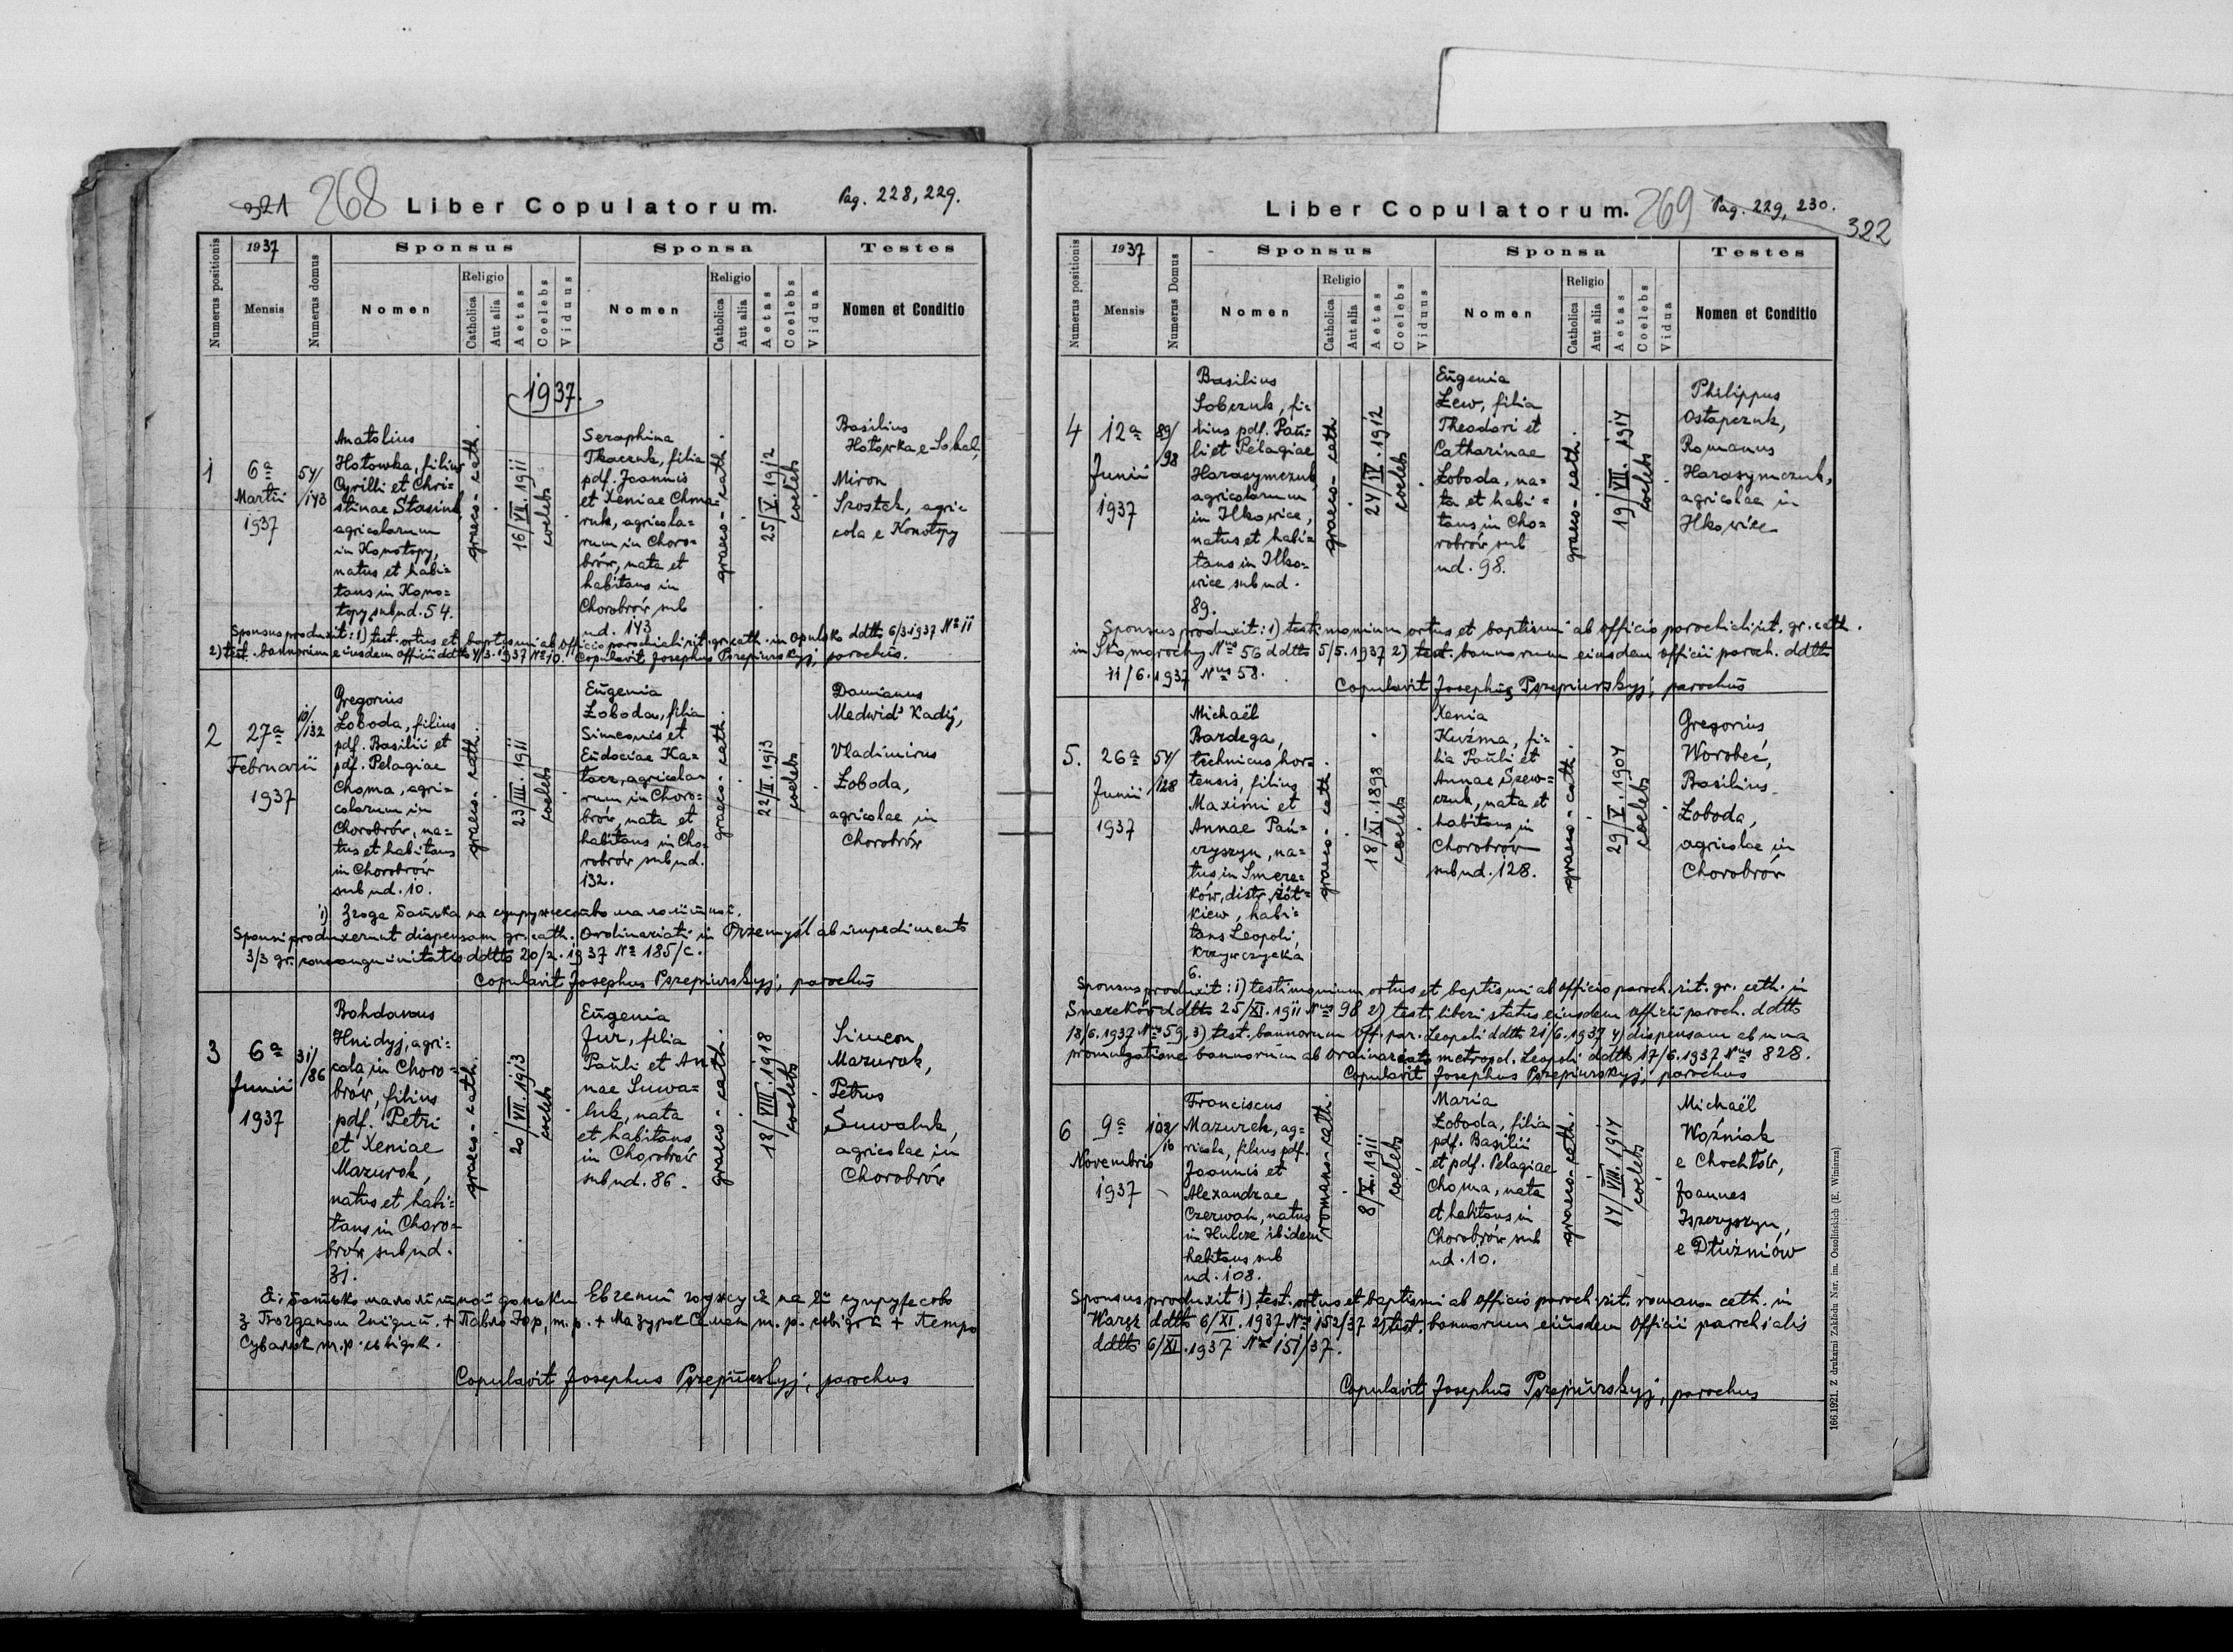 321 268 Liber Copulatorum. Pag. 228, 229.
Numerus positionis
1937
Mensis
Numerus domus
Sponsus
Nomen
Religio
Catholica
Aut alia
Aetas
Coelebs
Viduus
Sponsa
Nomen
Religio
Catholica
Aut alia
Aetas
Coelebs
Vidua
Testes
Nomen et Conditio
1937.
1
6a
Martii
1937
54/
/143
Anatolius
Hotowka, filius
Cyrilli et Chri=
stinae Stasiuk,
agricolarum
in Konotopy,
natus et habi=
tans in Kono=
topy sub nd. 54.
graeco-cath.
16/VII.1911
coelebs
Seraphina
Tkaczuk, filia
pdf. Joannis
et Xeniae Chma=
ruk, agricola=
rum in Choro=
brów, nata et
habitans in
Chorobrów sub
nd. 143
graeco-cath.
25/V.1912
coelebs
Basilius
Hotowka e Sokal,
Miron
Szostak, agri=
cola e Konotopy
Sponsus produxit: 1) test. ortus et baptismi ab officio parochiali rit. gr. cath. in Opulsko ddtto 6/3.1937 No 11
2) test. bannorum eiusdem officii ddtto 4/3.1937 No 10. Copulavit Josephus Pszepiurskyj, parochus.
2
27a
Februarii
1937
10/
/132
Gregorius
Łoboda, filius
pdf. Basilii et
pdf. Pelagiae
Choma, agri=
colarum in
Chorobrów, na=
tus et habitans
in Chorobrów
sub nd. 10.
graeco-cath.
23/III.1911
coelebs
Eugenia
Łoboda, filia
Simeonis et
Eudociae Ka=
tacz, agricola=
rum in Choro=
brów, nata et
habitans in Cho=
robrów sub nd.
132.
graeco-cath.
22/II.1913
coelebs
Damianus
Medwid' Kadij,
Vladimirus
Łoboda,
agricolae in
Chorobrów
1) Згода батька на супружество малолітної.
Sponsi produxerunt dispensam gr. cath. Ordinariati in Przemyśl ab impedimento
3/3 gr. consanguinitatis ddtto 20/2.1937 No 185/c.
Copulavit Josephus Pszepiurskyj, parochus
3
6a
Junii
1937
31/
/86
Bohdanus
Hnidyj, agri=
cola in Choro=
brów, filius
pdf. Petri
et Xeniae
Mazurok,
natus et habi=
tans in Choro=
brów sub nd.
31.
graeco-cath.
20/VII.1913
coelebs
Eugenia
Jur, filia
Pauli et An
nae Suwa=
luk, nata
et habitans
in Chorobrów
sub nd. 86.
graeco-cath.
18/VIII.1918
coelebs
Simeon
Mazurok,
Petrus
Suwaluk,
agricolae in
Chorobrów
батько малолітної доньки Евгенії годжуся на її супружество
з Богданом Гнідий. + Павло Юр, m.p. + Мазурок Семан m.p. свідок + Петро
Сувалюк m.p. свідок.
Copulavit Josephus Pszepiurskyj, parochus
Liber Copulatorum. 269 Pag. 229, 230.
322
Numerus positionis
1937
Mensis
Numerus Domus
Sponsus
Nomen
Religio
Catholica
Aut alia
Aetas
Coelebs
Viduus
Sponsa
Nomen
Religio
Catholica
Aut alia
Aetas
Coelebs
Vidua
Testes
Nomen et Conditio
4
12a
Junii
1937
89/
/98
Basilius
Sobczuk, fi=
lius pdf. Pau=
li et Pelagiae
Harasymczuk,
agricolarum
in Ilkowice,
natus et habi=
tans in Ilko=
wice sub nd.
89.
graeco-cath
24/IV.1912
coelebs
Eugenia
Lew, filia
Theodori et
Catharinae
Łoboda, na=
ta et habi=
tans in Cho=
robrów sub
nd. 98.
graeco-cath.
19/VII.1914
coelebs
Philippus
Ostapczuk,
Romanus
Harasymczuk,
agricolae in
Ilkowice
Sponsus produxit: 1) testimonium ortus et baptismi ab officio parochiali rit. gr. cath.
in Skomorochy Nus 56 ddtto 5/5.1937 2) test. bannorum eiusdem officii paroch. ddtto
11/6.1937 Nus 58.
Copulavit Josephus Pszepiurskyj, parochus
5.
26a
Junii
1937
54/
/128
Michaël
Bardega,
technicus hor=
tensis, filius
Maximi et
Annae Pań=
czyszyn, na=
tus in Smere=
ków, distr. Żół=
kiew, habi=
tans Leopoli,
Krzywczycka
6.
graeco-cath.
18/XI.1898
coelebs
Xenia
Kuźma, fi=
lia Pauli et
Annae Szew=
czuk, nata et
habitans in
Chorobrów
sub nd. 128.
graeco-cath.
29/V.1904
coelebs
Gregorius,
Worobeć,
Basilius
Łoboda,
agricolae in
Chorobrów
Sponsus produxit: 1) testimonium ortus et baptismi ab officio paroch. rit. gr. cath. in
Smereków ddtto 25/XI.1911 Nus 98 2) test. liberi status eiusdem officii paroch. ddtto
18/6.1937 No 59, 3) test. bannorum off. par. Leopoli ddtto 21/6.1937 4) dispensam ab una
promulgatione bannorum ab Ordinariato metropol. Leopoli ddtto 17/6.1937 Nus 828.
Copulavit Josephus Pszepiurskyj, parochus
6
9a
Novembris
1937
108/
/10
Franciscus
Mazurek, ag=
ricola, filius pdf.
Joannis et
Alexandrae
Czerwak, natus
in Hulcze ibidem
habitans sub
nd. 108.
romano-cath.
8/X.1911
coelebs
Maria
Łoboda, filia
pdf. Basilii
et pdf. Pelagiae
Choma, nata
et habitans in
Chorobrów sub
nd. 10.
graeco-cath.
14/VIII.1914
coelebs
Michaël
Woźniak
e Chochłów,
Joannes
Iszczyszyn,
e Dłużniów
Sponsus produxit 1) test. ortus et baptismi ab officio paroch. rit. romano cath. in
Waręż ddtto 6/XI.1937 No 152/37 2) test. bannorum eiusdem officii parochialis
ddtto 6/XI.1937 No 151/37.
Copulavit Josephus Pszepiurskyj, parochus
166.1921. Z drukarni Zakładu Nar. im. Ossolińskich (E. Winiarza)